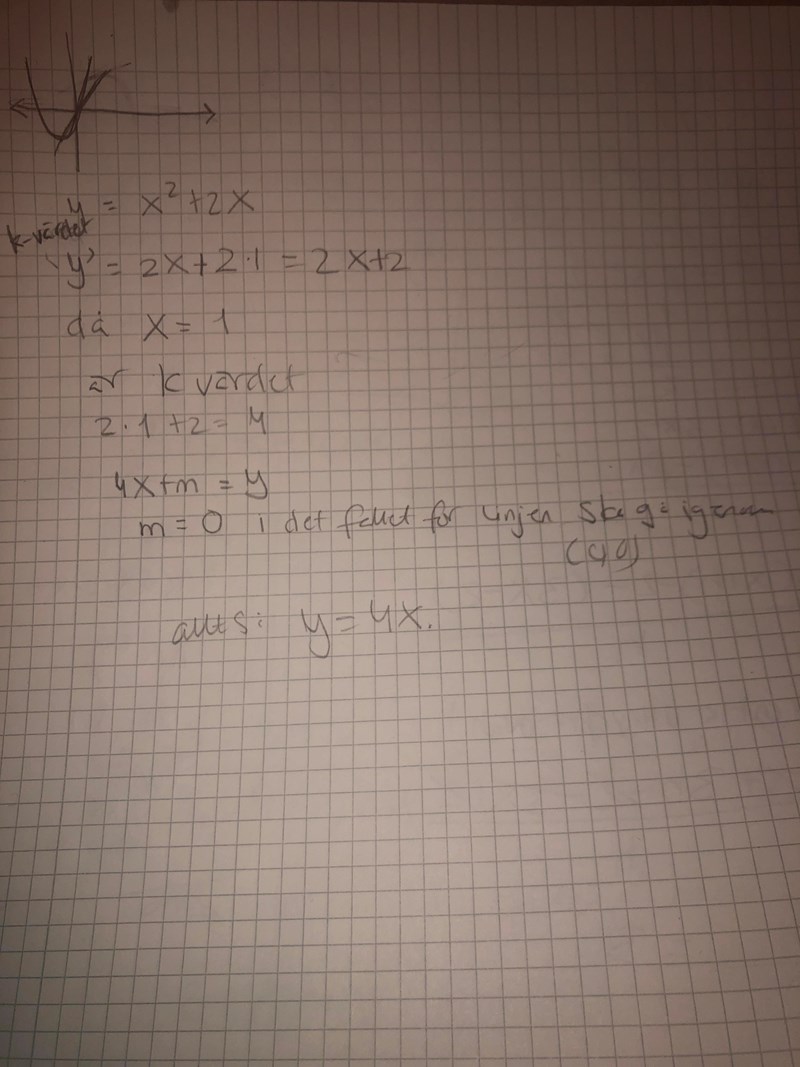 y = x² + 2x
k-värdet
y' = 2x + 2·1 = 2x+2
då x = 1
är k värdet
2·1 +2 = 4
4x+m = y
m = 0 i det fallet för linjen ska gå igenom
alltså: y = 4x.